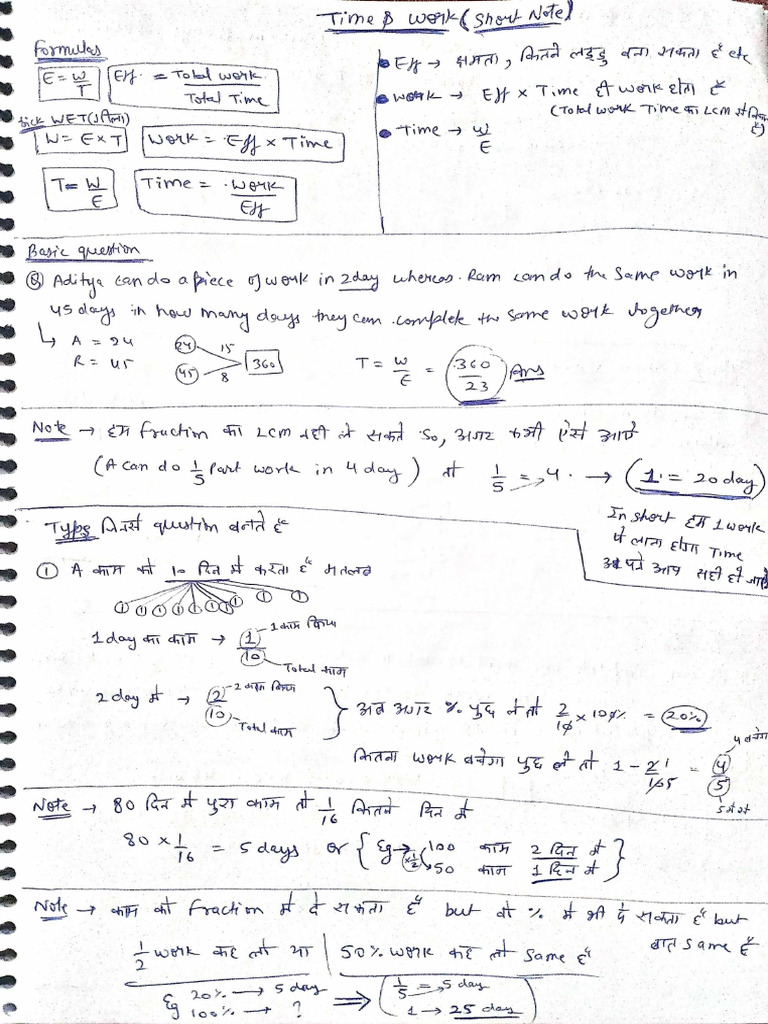 Time & Work (Short Note)
Formulas
E = W/T
Eff. = Total work / Total Time
Trick WET
W = E × T
Work = Eff × Time
T = W/E
Time = work/Eff
Eff → क्षमता, कितने लड्डु बना सकता है etc
work → Eff × Time ही work होता है
(Total work Time का LCM से
Time → W/E
Basic question
Q Aditya can do a piece of work in 2day whereas Ram can do the same work in
45 days in how many days they can complete the same work together
A = 24
R = 45
24 15
45 8
360
T = W/E = 360/23 Ans
Note → हम fraction का LCM नही ले सकते so, अगर कभी ऐसे आऐ
(A can do 1/5 part work in 4 day) तो 1/5 = 4 → (1 = 20 day)
In short हम 1 work
पे लाना होगा Time
अपने आप सही हो
Type जिनसे question बनते है
① A काम को 10 दिन मे करता है मतलब
1 1 1 1 1 1 1 1 1 1
1 day का काम → 1/10
1 काम किया
Total काम
2 day मे → 2/10
2 काम किया
Total काम
अब अगर % पुछ ले तो 2/10 × 100% = 20%
कितना work बचेगा पुछ ले तो 1 - 2/10 = 4/5
4 बचेगा
5 मे से
Note → 80 दिन मे पुरा काम तो 1/16 कितने दिन मे
80 × 1/16 = 5 days or { Eg → 100 काम 2 दिन मे
×1/2 50 काम 1 दिन मे }
Note → काम को fraction मे दे सकता है but वो % मे भी दे सकता है but
बात same है
1/2 work कह लो या | 50% work कह लो same है
Eg 20% → 5 day
100% → ?
⇒ (1/5 = 5 day
1 → 25 day)